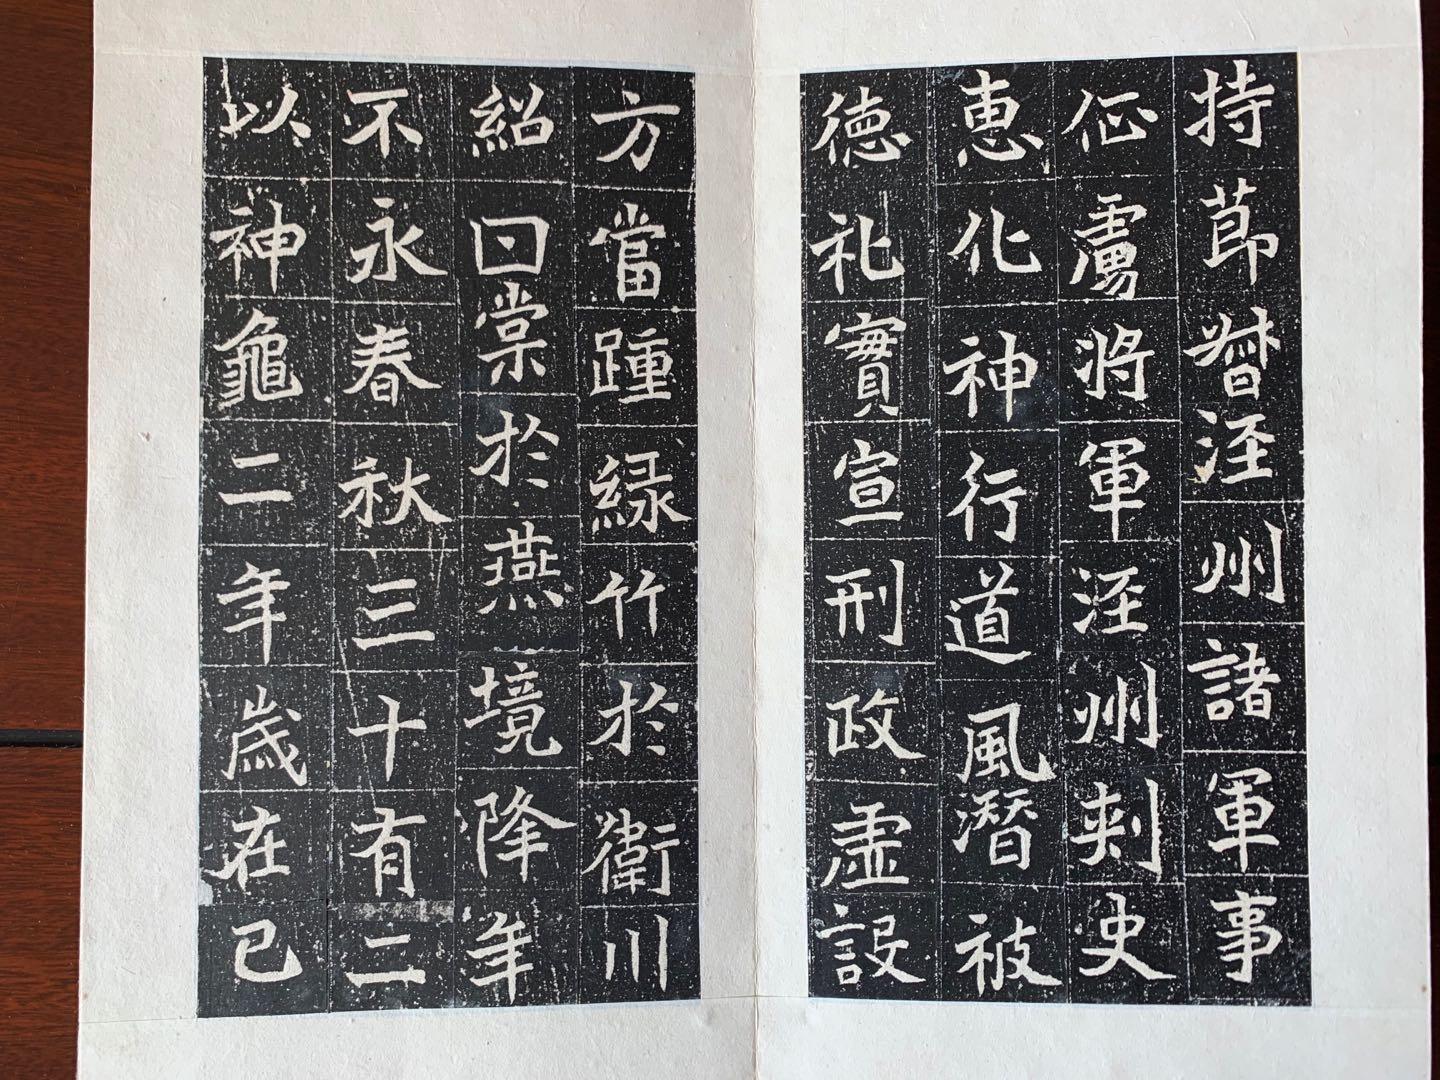 持節督涇州諸軍事
征虜將軍涇州刺史
惠化神行道風潛被
德礼實宣刑政虛設
方當踵綠竹於衛川
紹曰棠於燕境降年
不永春秋三十有二
以神龜二年歲在己